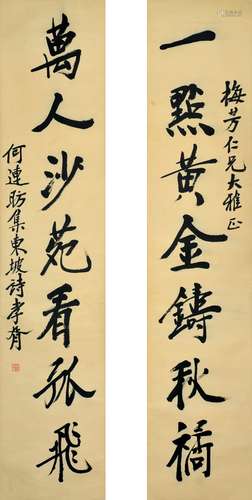 梅芳仁兄大雅正
一點黃金鑄秋橘
萬人沙苑看孤飛
何連昉集東坡詩孝胥